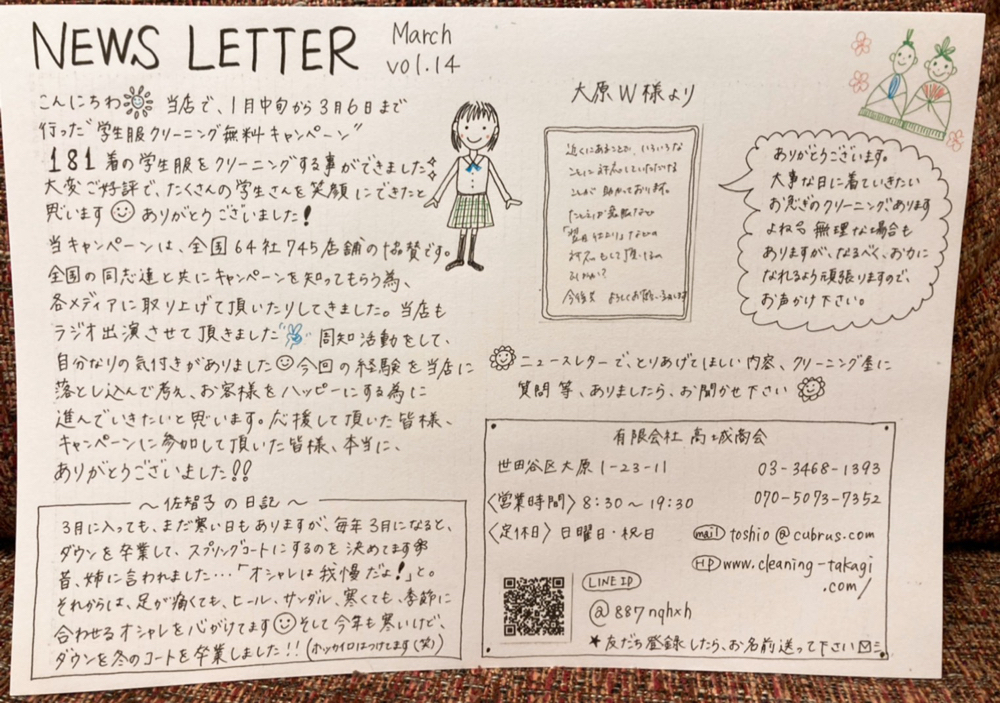 NEWS LETTER
March
vol.14
こんにちわ 当店で、1月中旬から3月6日まで
行った"学生服クリーニング無料キャンペーン"
181着の学生服をクリーニングする事ができました
大変ご好評で、たくさんの学生さんを笑顔にできたと
思います ありがとうございました!
当キャンペーンは、全国64社745店舗の協賛です。
全国の同志達と共にキャンペーンを知ってもらう為、
各メディアに取り上げて頂いたりしてきました。当店も
ラジオ出演させて頂きました 周知活動をして、
自分なりの気付きがありました 今回の経験を当店に
落とし込んで考え、お客様をハッピーにする為に
進んでいきたいと思います。応援して頂いた皆様、
キャンペーンに参加して頂いた皆様、本当に、
ありがとうございました!!
〜佐智子の日記〜
3月に入っても、まだ寒い日もありますが、毎年3月になると、
ダウンを卒業して、スプリングコートにするのを決めてます
昔、姉に言われました…「オシャレは我慢だよ!」と。
それからは、足が痛くても、ヒール、サンダル、寒くても、季節に
合わせるオシャレを心がけてます そして今年も寒いけど、
ダウンを冬のコートを卒業しました!!(ホッカイロはつけてます(笑))
大原W様より
近くにあることで、いろいろな
ことに対応していただける
ことが 助かっております。
「翌日仕上り」などの
対応もして頂けるの
今後共 よろしくお願いします
ありがとうございます。
大事な日に着ていきたい
お急ぎのクリーニングあります
よね 無理な場合も
ありますが、なるべく、お力に
なれるよう頑張りますので、
お声かけ下さい。
ニュースレターで、とりあげてほしい内容、クリーニング屋に
質問等、ありましたら、お聞かせ下さい
有限会社 高城商会
世田谷区大原1-23-11
03-3468-1393
070-5073-7352
〈営業時間〉8:30〜19:30
〈定休日〉日曜日・祝日
mail toshio@cubrus.com
HP www.cleaning-takagi
.com/
LINE ID
@887nqhxh
★友だち登録したら、お名前送って下さい